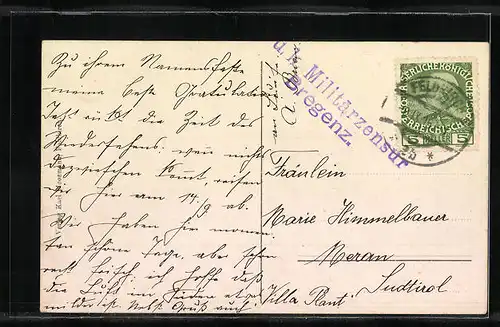 Zu ihrem Namensfeste
meine beste Gratulation
Jetzt ist die Zeit des
Wiedersehens, wenn nichts
dazwischen kommt, reisen
wir hier am 14/9 ab.
Wir haben hier momen
tan schöne Tage, aber sehr
recht frisch; ich hoffe daß
die Luft im Süden etwas
milder ist. Gruß auch
u. k. Militärzensur
Bregenz.
KAISERLICHE KÖNIGLICHE
ÖSTERREICHISCHE
5 5
Fräulein
Marie Himmelbauer
Meran
Südtirol
Villa Plant